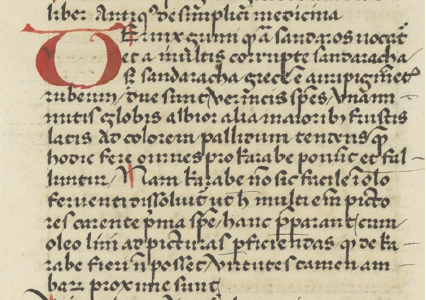 liber Antiqꝰ de simplici medicina
Vernix gum̄i q̄ a sandaros uocat᷑
et a multis corrupte sandaracha
S; sandaracha grece ē auripigmēt᷑
rubeum / due sunt ver̄nicis sp̄es / vna mi
nutis globis albior alia maioribꝫ frustis
latis ad colorem pallidum tendens q̄
hodie fere omnes pro karabe ponūt et fal
luntur / Nam karabe nō sic facile ī olo
feruenti dissoluit᷑ ut h̄ multi em̄ picto
res carente p̄ma sp̄e hanc p̄parant cum
oleo lini ad picturas p̄ficiendas q̄ de ka
rabe fieri nō posset / virtutes tamen am
barꝝ proxime sunt